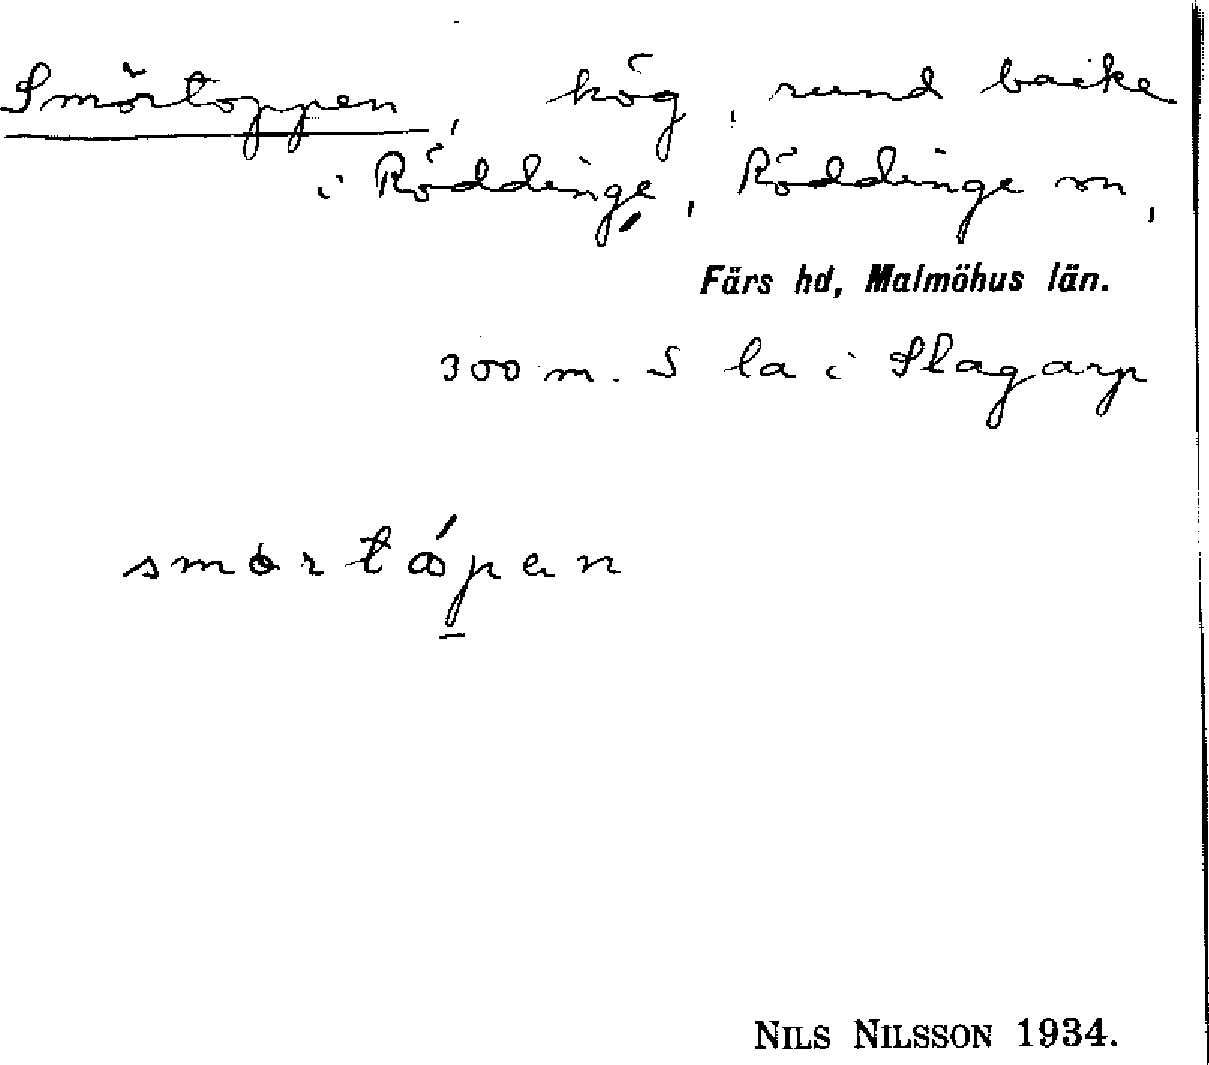 Smörtoppen, hög, rund backe
i Röddinge, Röddinge sn,
Färs hd, Malmöhus län.
300 m. S la i Slagarp
NILS NILSSON 1934.